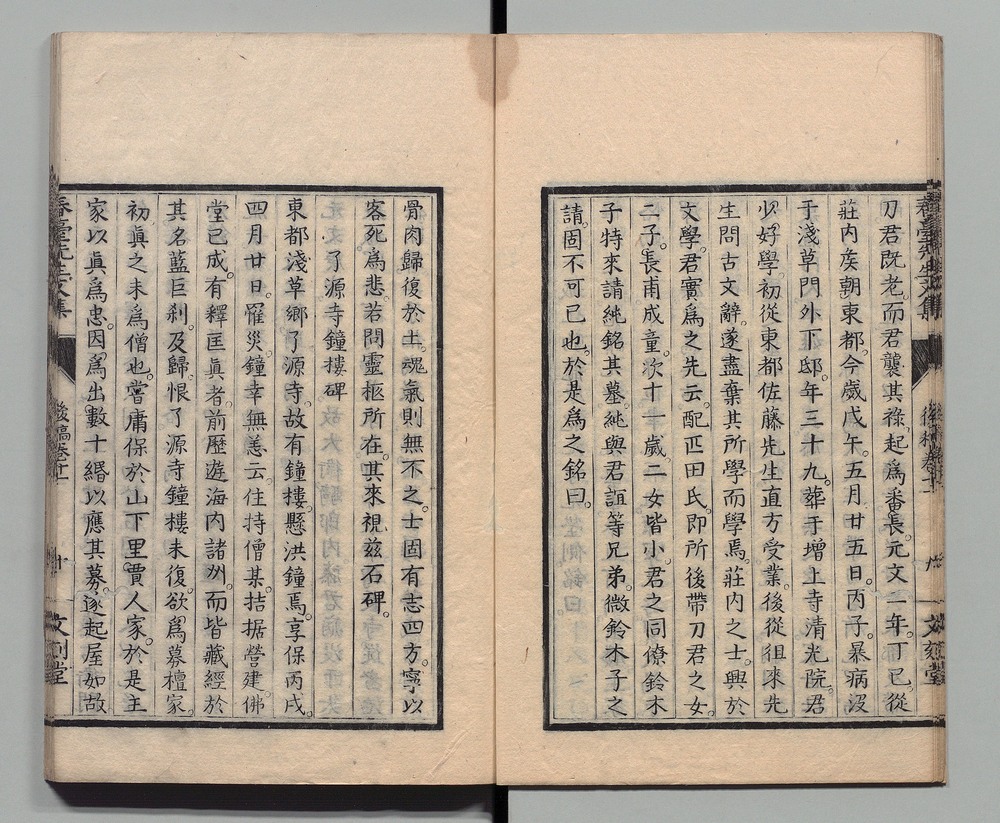 刀君既老。而君襲其祿。起爲番長。元文二年。丁巳從
莊内矦朝東都。今歲戊午。五月廿五日。丙子。暴病沒
于淺草門外下邸。年三十九。葬于增上寺清光院。君
少好學。初從東都佐藤先生直方受業。後從徂來先
生問古文辭。遂盡棄其所學而學焉。莊内之士。興於
文學。君實爲之先云。配匹田氏。即所後帶刀君之女。
二子。長甫成童。次十一歲。二女皆小。君之同僚鈴木
子特來請純銘其墓。純與君誼等兄弟。微鈴木子之
請。固不可已也。於是爲之銘曰。
骨肉歸復於土。魂氣則無不之。士固有志四方。寧以
客死爲悲。若問靈柩所在。其來視兹石碑。
了源寺鐘樓碑
東都淺草鄉了源寺。故有鐘樓。懸洪鐘焉。享保丙戌。
四月廿日。罹災。鐘幸無恙云。住持僧某。拮据營建。佛
堂已成。有釋匡眞者。前歷遊海内諸州。而皆藏經於
其名藍巨刹。及歸。恨了源寺鐘樓未復。欲爲募檀家。
初眞之未爲僧也。嘗庸保於山下里賈人家。於是主
家以眞爲忠。因爲出數十緡以應其募。遂起屋如故
春臺先生文集
後稿卷十一
十
文刻堂